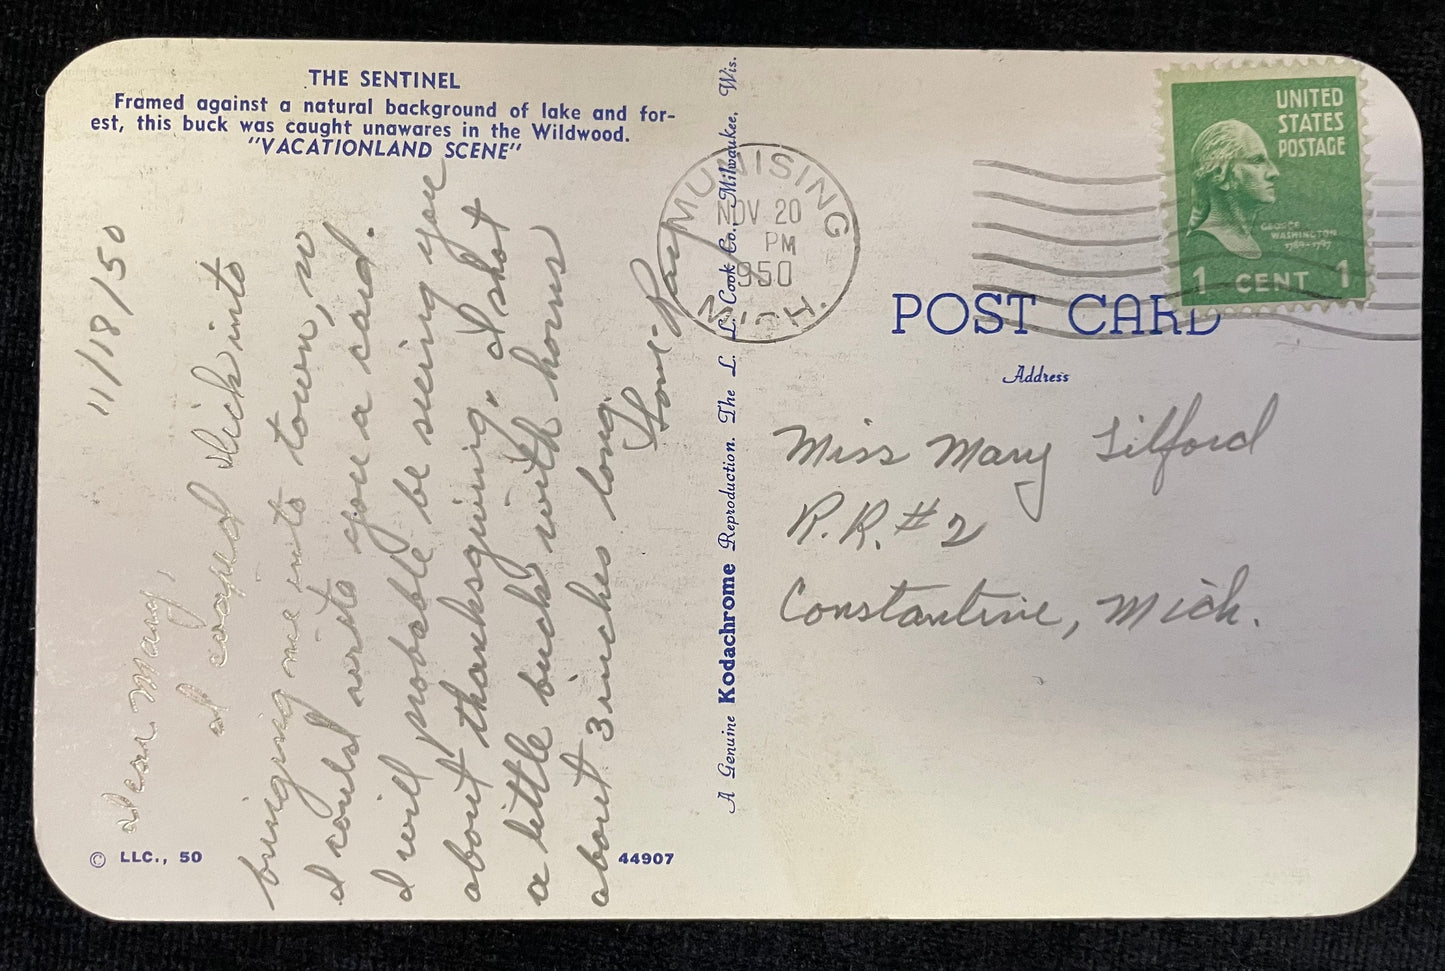 THE SENTINEL
Framed against a natural background of lake and for-
est, this buck was caught unawares in the Wildwood.
"VACATIONLAND SCENE"
11/18/50
Dear Mary,
I conjued Dick into
bringing me into town, so
I could write you a card.
I will probable be seeing you
about thanksgiving, I shot
a little buck with horns
about 3 inches long.
Love Ray
© LLC., 50
44907
A Genuine Kodachrome Reproduction. The L. L. Cook Co., Milwaukee, Wis.
MUNISING
NOV 20
PM
1950
MICH.
UNITED
STATES
POSTAGE
GEORGE
WASHINGTON
1789-1797
1 CENT 1
POST CARD
Address
Miss Mary Tilford
R.R. #2
Constantine, Mich.